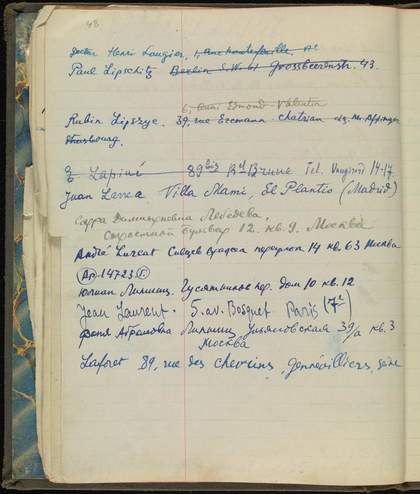 48
Docteur Henri Laugier, 1, rue Hautefeuille, 
Paul Lipschitz Berlin S.W. 61 Grossbeerenstr. 43.
6, Quai Edmond Valentin
Rubin Lipszyc. 39, rue Ercmann Chatrian
Strasbourg.
E. Lapiné 89 bis Bd Brune Tel. Vaugirard 14-17
Juan Larrea Villa Mami, El Plantio (Madrid)
Сарра Дмитриевна Лебедева.
Страстной бульвар 12. кв. 9. Москва
André Lurcat Сивцев вражек переулок 14 кв 63 Москва
14723
Юлиан Липшиц. Гусятников пер. дом 10 кв. 12
Jean Laurent. 5. av. Bosquet Paris (7e)
Фаня Абрамовна Липшиц Ульяновская 39/а кв. 3
Москва
Laforet 89, rue des chevrins, Gennevilliers, Seine